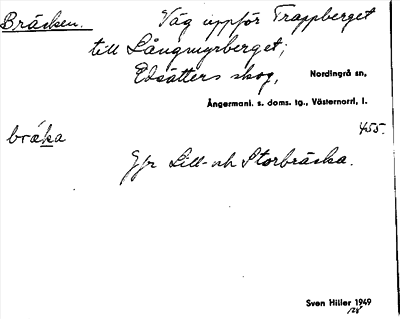 Bräcken. Väg uppför Trappberget
till Långmyrberget;
Edsätters skog, Nordingrå sn,
Ångermanl. s. doms. tg., Västernorrl, l.
455.
bráka
Jfr Lill- och Storbräcka.
Sven Hiller 1949